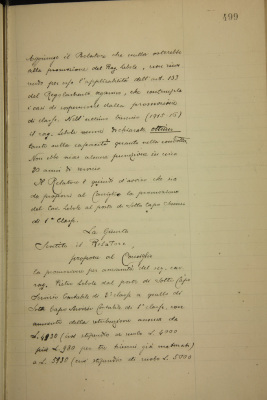 199
Aggiunge il Relatore che nulla osterebbe
alla promozione del Rag. Lebole, non rica
dendo per esso l'applicabilità dell'art. 133
del Regolamento organico, che contempla
i casi di esclusione dalla promozione
di classe. Nell'ultimo biennio (1915-16)
il rag. Lebole venne dichiarato ottimo
tanto nella capacità quanto nella condotta.
Non ebbe mai alcuna punizione in circa
20 anni di servizio
Il Relatore è quindi d'avviso che sia
da proporsi al Consiglio la promozione
del Cav. Lebole al posto di Sotto Capo Servizio
di 1ª classe.
La Giunta
Sentito il Relatore,
propone al Consiglio
la promozione per anzianità del sig. cav.
rag. Lebole dal posto di Sotto Capo
Servizio Contabile di 2ª classe a quello di
Sotto Capo Servizio Contabile di 1ª classe, con
aumento della retribuzione annua da
L. 4930 (cioè stipendio in ruolo L. 4000
più L. 930 per tre trienni già maturati)
a L. 5930 (cioè stipendio di ruolo L. 5000